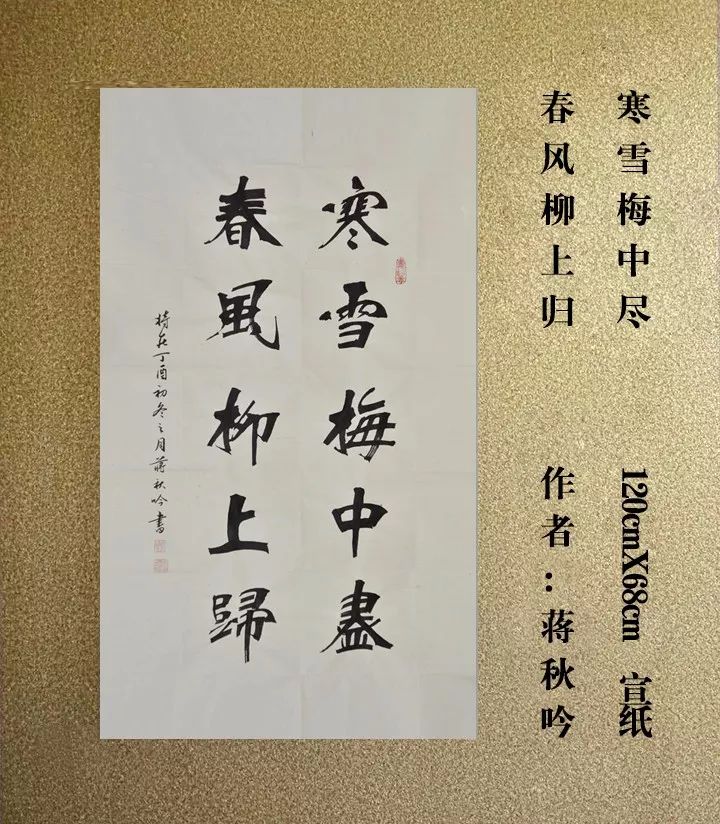 寒雪梅中盡
春風柳上歸
時在丁酉初冬之月蔣秋吟書
寒雪梅中尽
春风柳上归
120cmX68cm 宣纸
作者：蒋秋吟